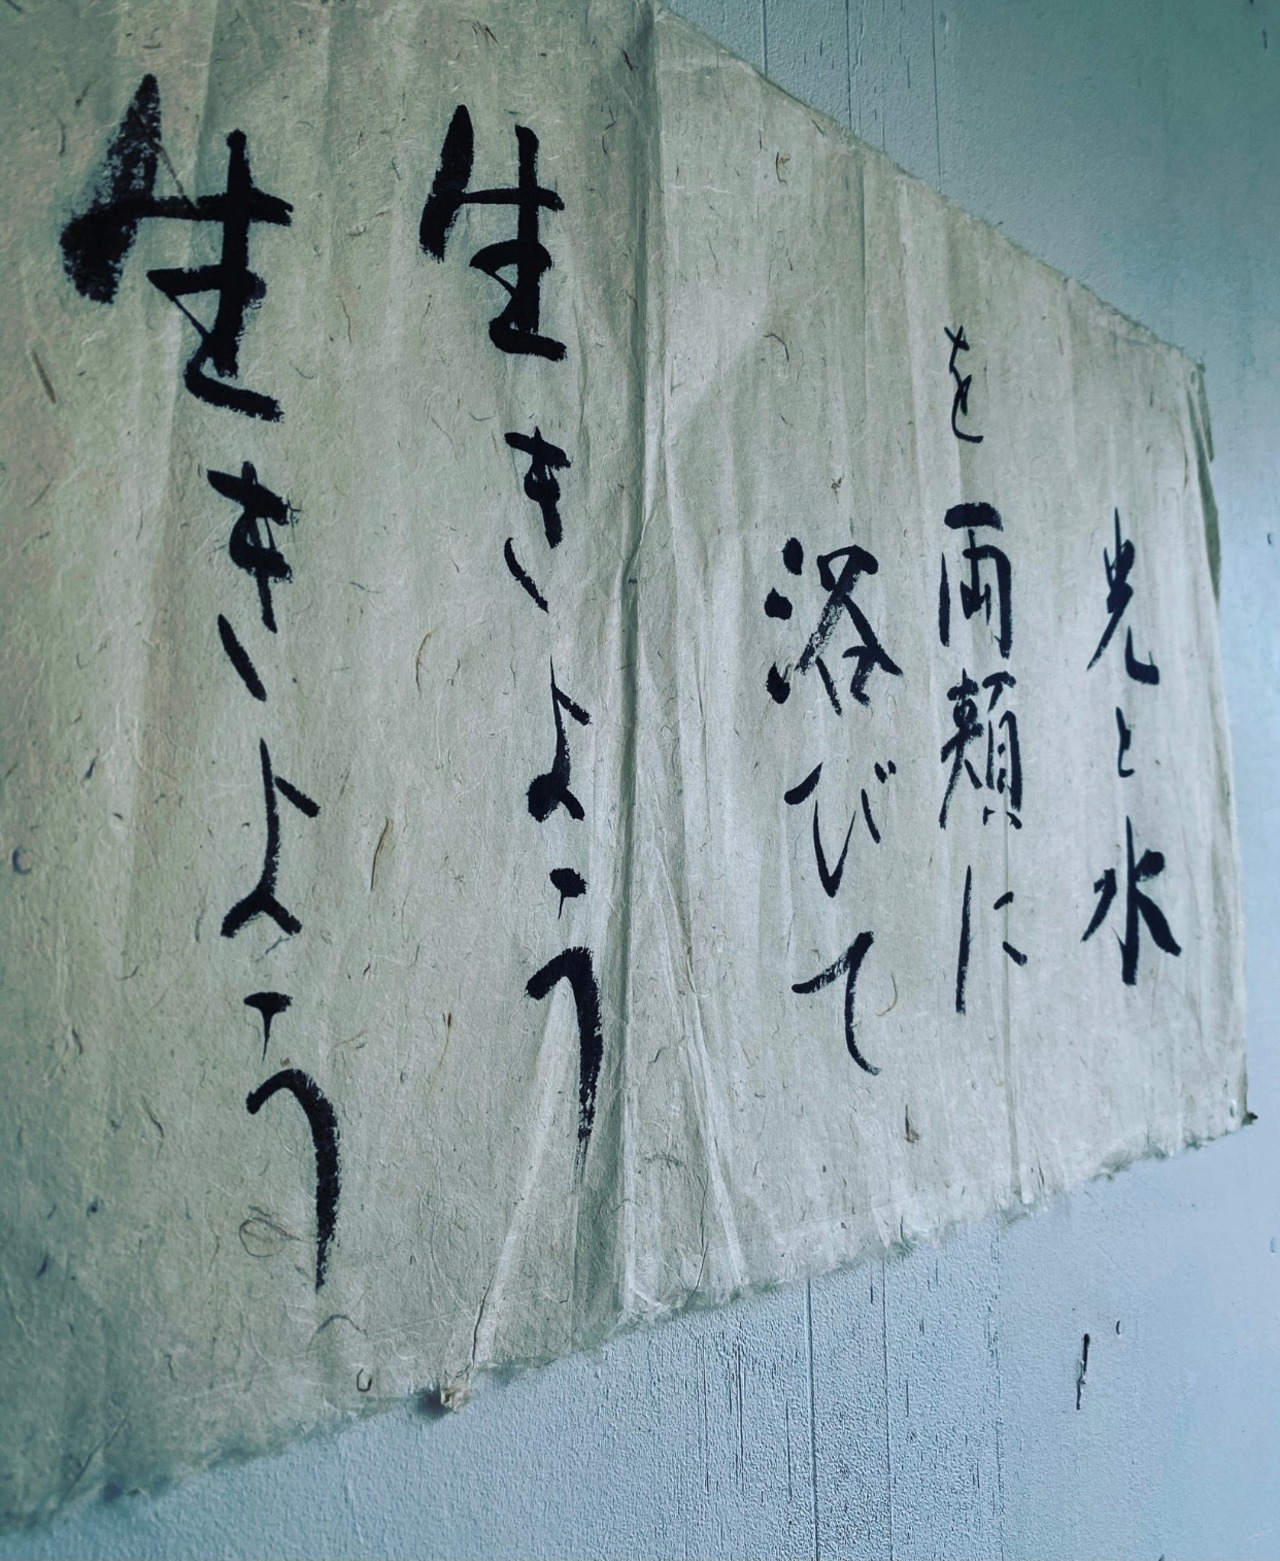 光と水
を両頬に
浴びて
生きよう
生きよう